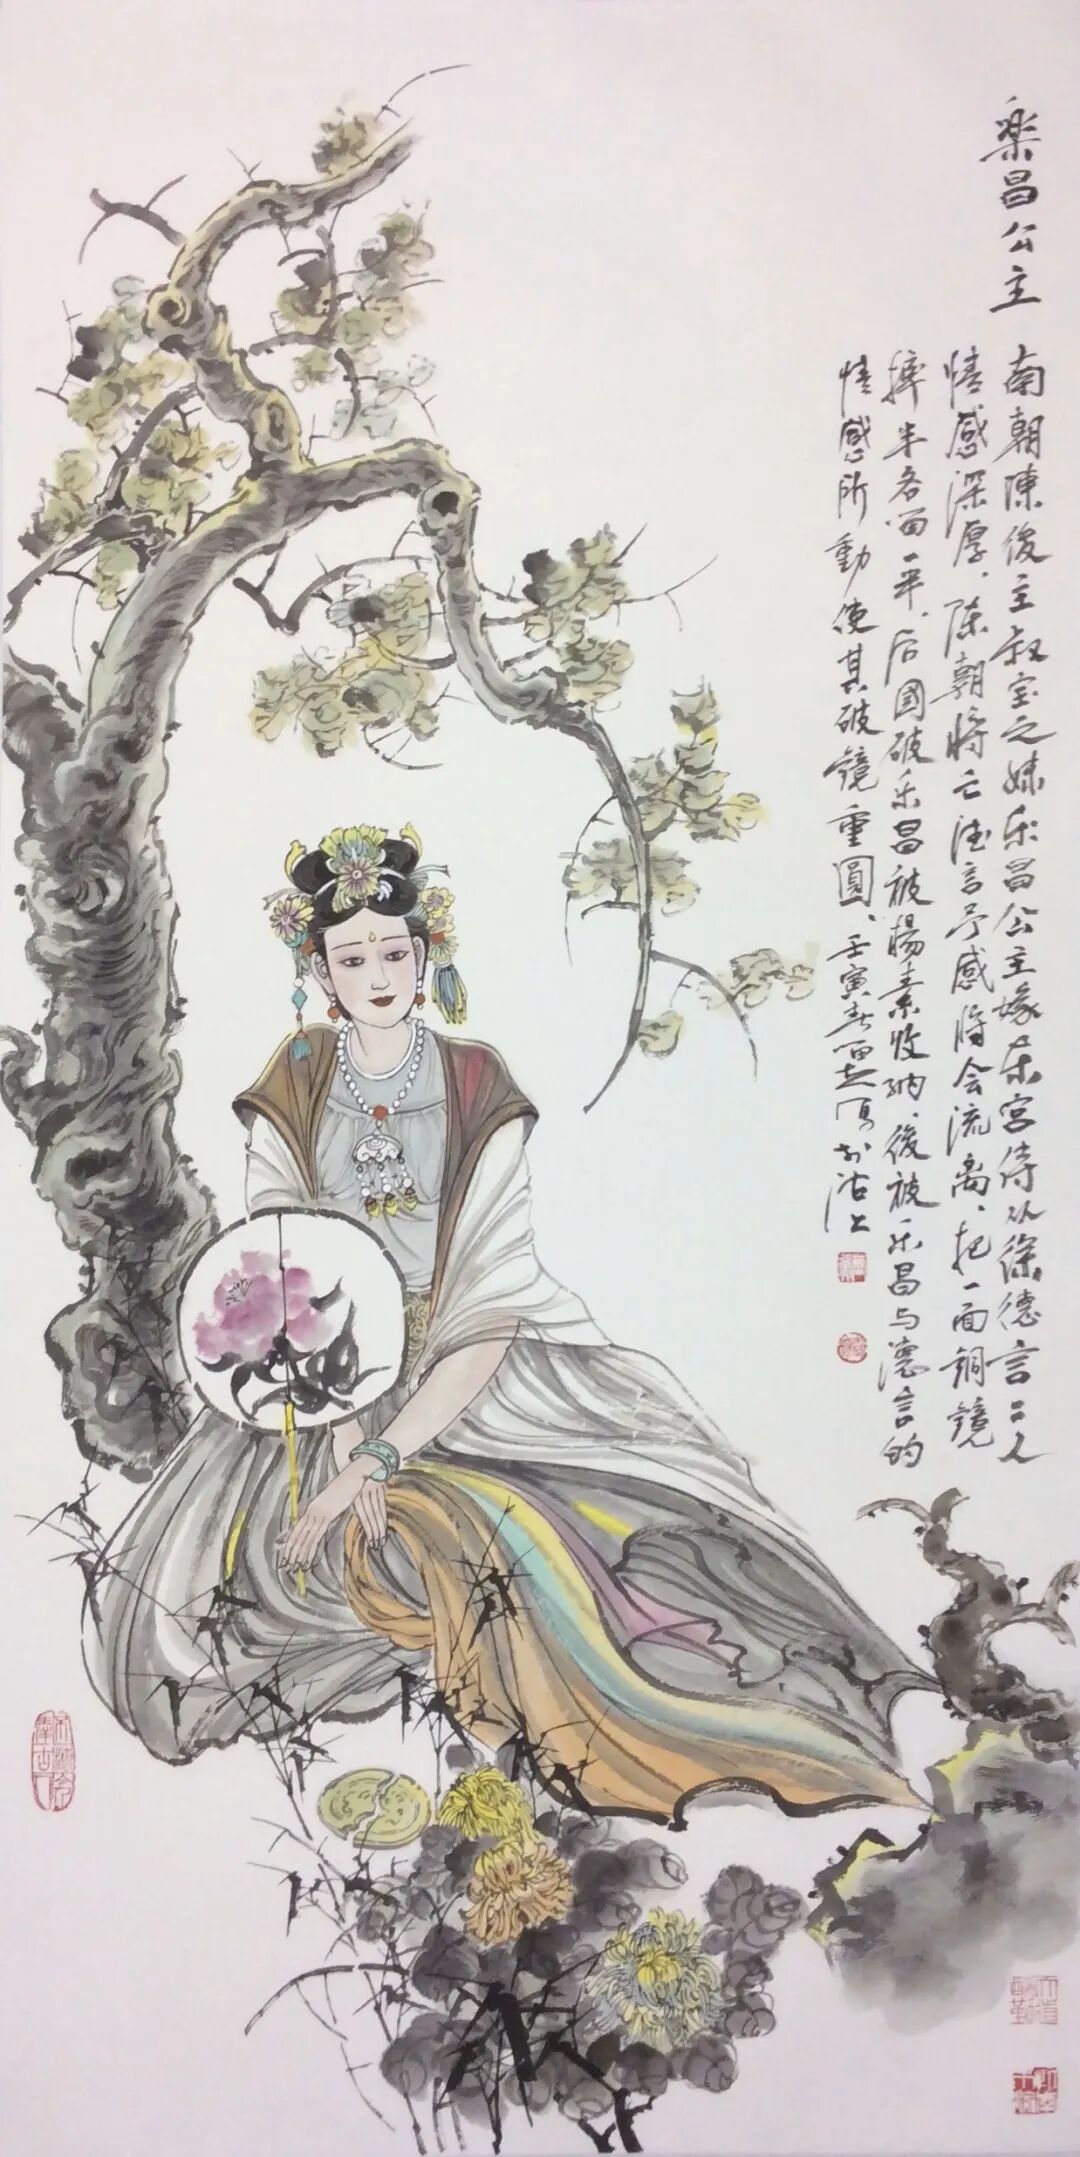 樂昌公主
南朝陳後主叔宝之妹乐昌公主嫁东宫侍从徐德言二人
情感深厚、陈朝将亡德言予感将会流离、把一面铜镜
摔半各留一半、后國破乐昌被楊素收納、後被乐昌与德言的
情感所動使其破镜重圓、壬寅春 写於沽上